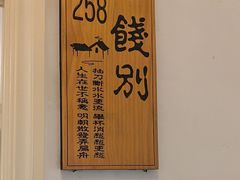 258
餞別
抽刀斷水水更流 舉杯消愁愁更愁
人生在世不稱意 明朝散發弄扁舟